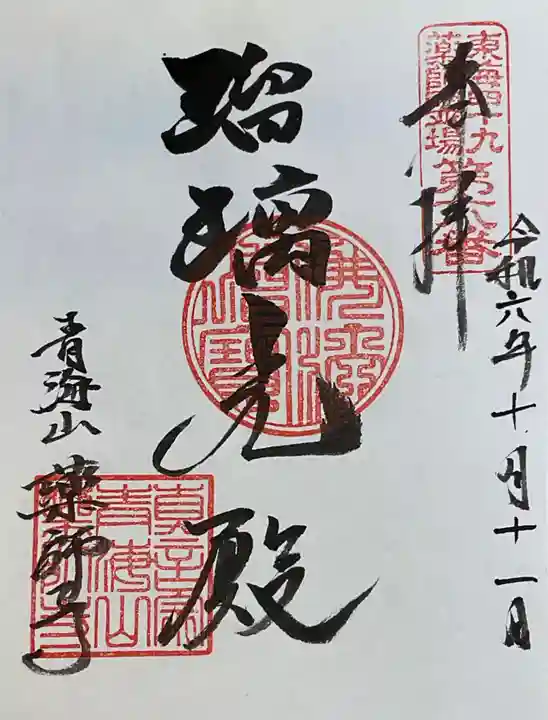 東海四十九
薬師霊場第六番
奉拝
令和六年十月十一日
瑠璃光殿
佛法僧寶
青海山
薬師寺
真言宗
青海山
薬師寺